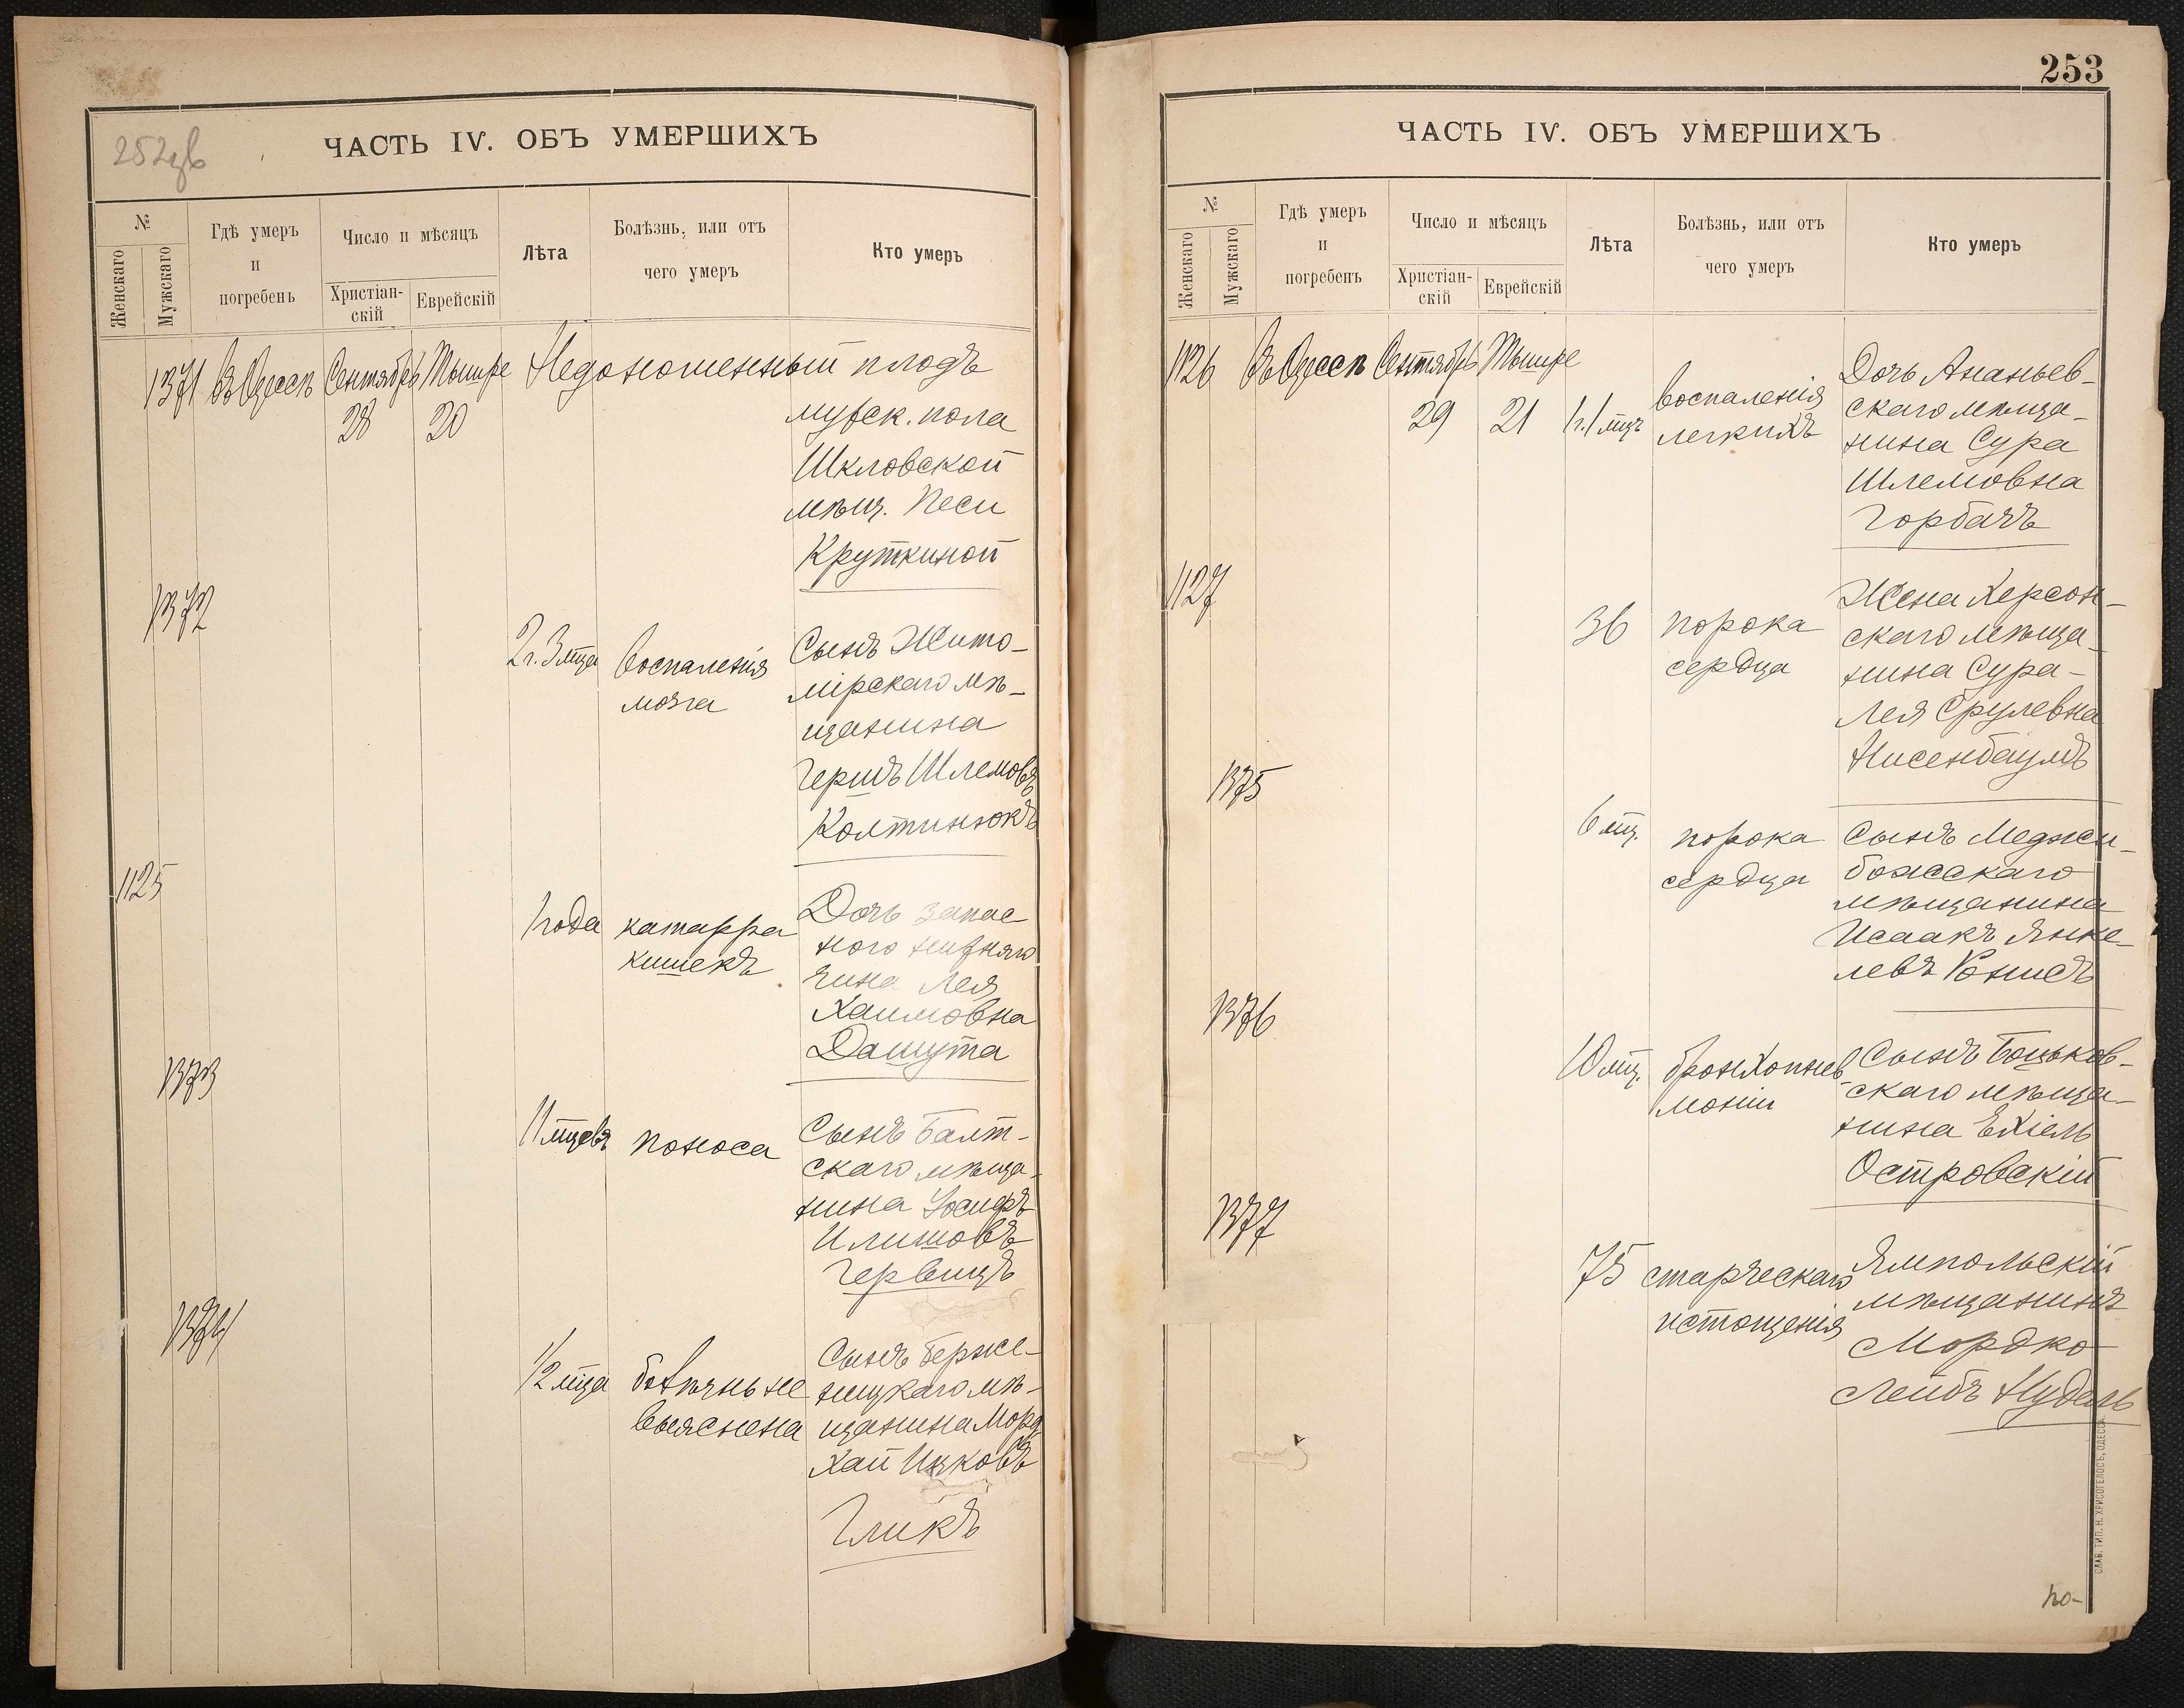 252 зв
ЧАСТЬ IV. ОБЪ УМЕРШИХЪ
№
Женскаго
Мужскаго
Гдѣ умеръ
и
погребенъ
Число и мѣсяцъ
Христіан-
скій
Еврейскій
Лѣта
Болѣзнь, или отъ
чего умеръ
Кто умеръ
1371 Въ Одессѣ Сентябрь Тышре Недоношенный плодъ
28 20
мужск. пола
Шкловской
мѣщ. Песи
Круткиной
1372
2 г. 3 мца воспаленія
мозга
Сынъ Жито-
мірскаго мѣ-
щанина
Гершъ Шлемовъ
Колтинюкъ
1125
1 года катарра
кишекъ
Дочь запас
ного нижняго
чина Лея
Хаимовна
Дашута
1373
11 мцевъ поноса
Сынъ Балт-
скаго мѣща-
нина Іосифъ
Илишовъ
Гервицъ
1374
1/2 мца болѣзнь не
выяснена
Сынъ Берже-
ницкаго мѣ-
щанина Морд
хай Ицковъ
Гликъ
253
ЧАСТЬ IV. ОБЪ УМЕРШИХЪ
№
Женскаго
Мужскаго
Гдѣ умеръ
и
погребенъ
Число и мѣсяцъ
Христіан-
скій
Еврейскій
Лѣта
Болѣзнь, или отъ
чего умеръ
Кто умеръ
1126 Въ Одессѣ Сентябрь Тышре
29 21 1 г. 1 мцъ
воспаленія
легкихъ
Дочь Ананьев-
скаго мѣща-
нина Сура
Шлемовна
Горбачъ
1127
36 порока
сердца
Жена Херсон-
скаго мѣща-
нина Сура-
Лея Срулевна
Нисенбаумъ
1375
6 мц. порока
сердца
Сынъ Меджи-
божскаго
мѣщанина
Исаакъ Янке-
левъ Ронисъ
1376
10 мц. бронхопнев-
моніи
Сынъ Боцьков-
скаго мѣща-
нина Ехіель
Островскій
1377
75 старческаго
истощенія
Ямпольскій
мѣщанинъ
Мордко
Лейбъ Нудель
СЛАВ. ТИП. Н. ХРИСОГЕЛОСЪ, ОДЕССА.
по-